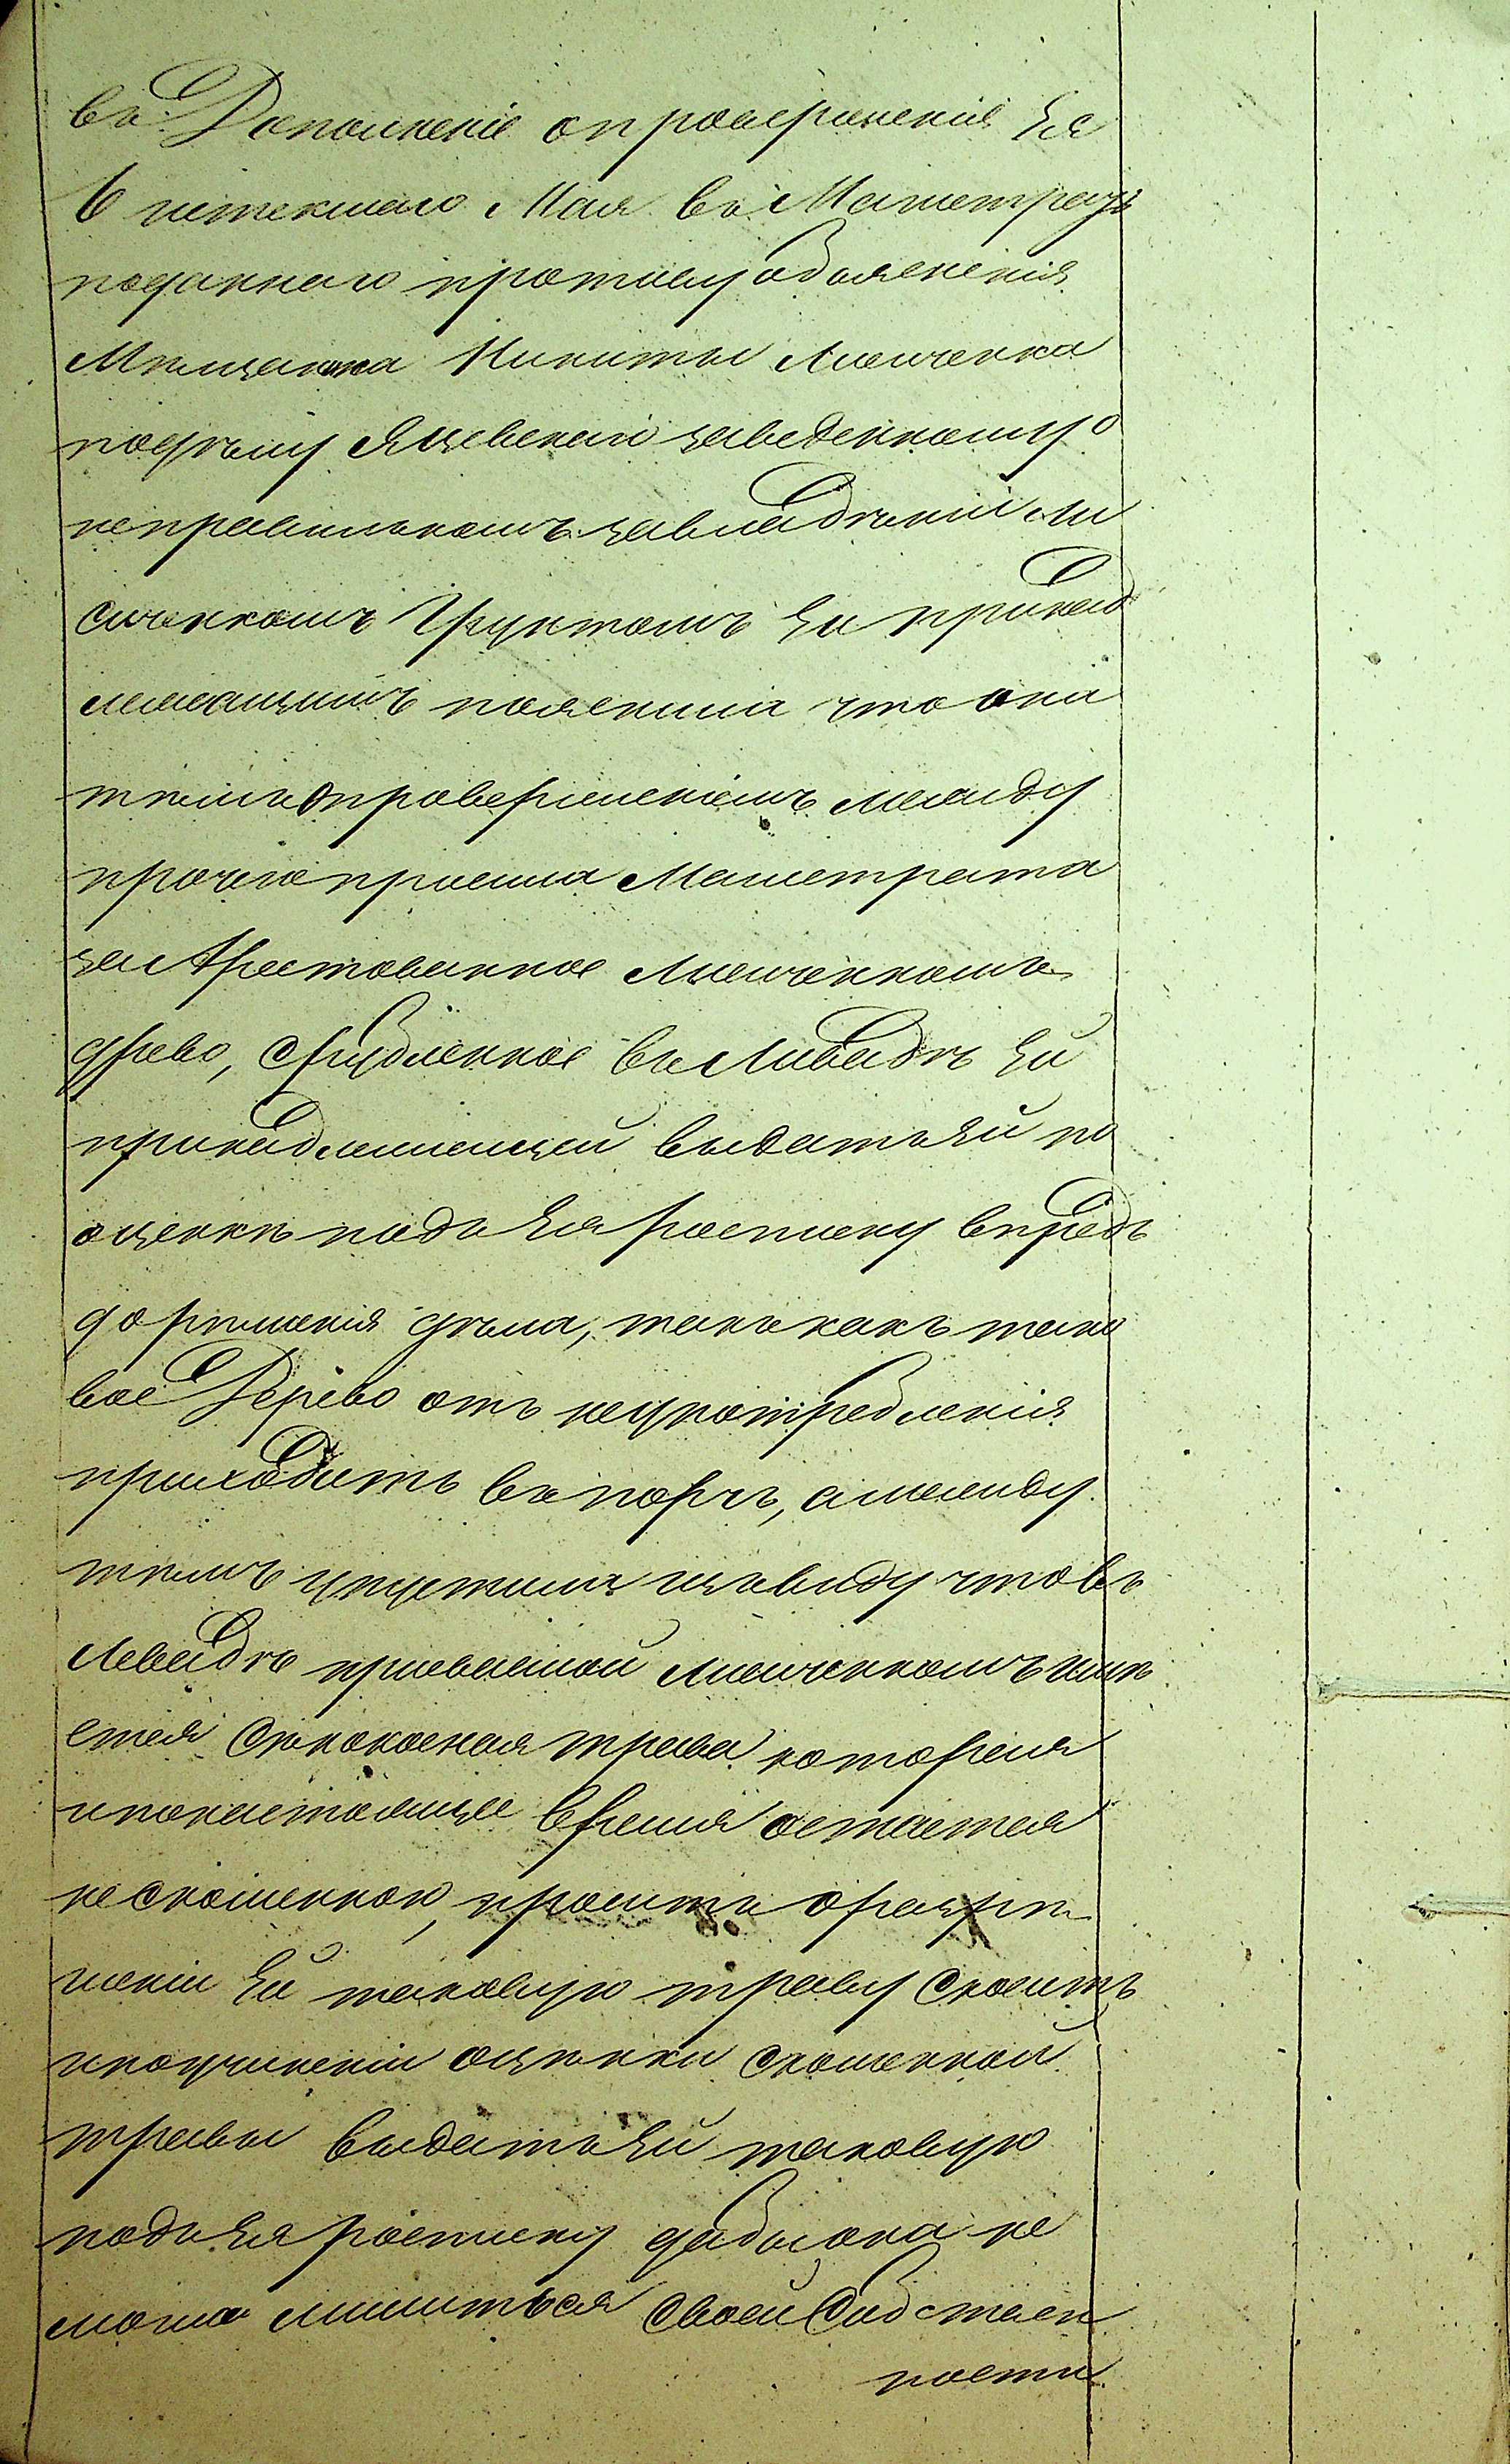 въ Дополненіе опроверженія Ея
6 истекшаго Мая въ Магистратъ
поданнаго противу объясненія
Мѣщанина Никиты Лисиченка
подѣлу Яцевской заведенному о
неправильномъ завладѣніи Ли
сиченкомъ Грунтомъ Ей принад
лежащимъ пояснила что она
тѣмъ опроверженіемъ между
прочего просила Магистрата
за Арестованное Лисиченкомъ
древо, срубленное въ Левадѣ Ей
принадлежащей выдать Ей по
оценкѣ подъ Ея росписку впредь
до решенія дѣла, такъ какъ тако
вое Дерево отъ неупотребленія
приходитъ въ порчь, а между
тѣмъ упустила изъ виду что въ
Левадѣ присваемой Лисиченкомъ имѣ
ется Сѣнокосная трава которая
и по настоящее время остается
не Скошенною, проситъ о разрѣ
шеніи Ей таковую траву Скосить
и по учиненіи оцѣнки Скошенной
травы выдать Ей таковую
подъ Ея росписку дабы она не
могла лишиться Своей Собствен
ности